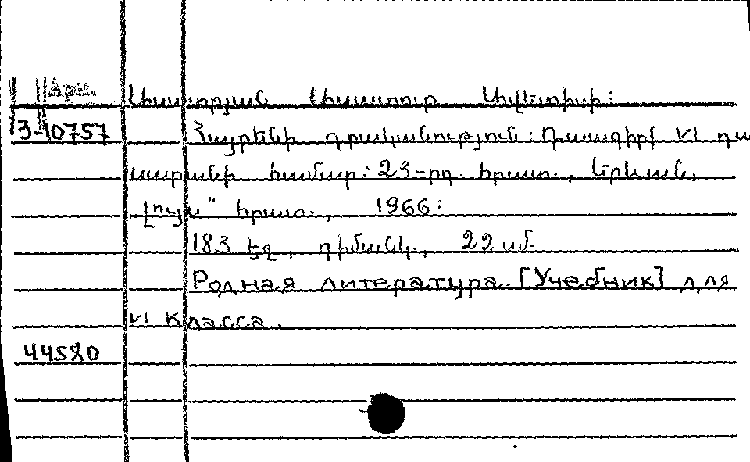 Ասատրյան Ասատուր Ավետիսի:
3-10757 Հայրենի գրականություն: Դասագիրք VI դա
սարանի համար: 23-րդ հրատ., Երևան,
„Լույս" հրատ., 1966:
183 էջ, դիմանկ., 22 սմ
Родная литература. [Учебник] для
VI класса.
44520